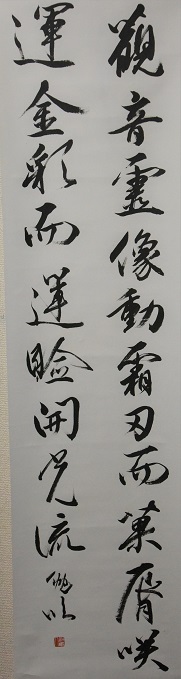 觀音靈像動霜刃而葉脣咲
運金彩而蓮瞼開先流